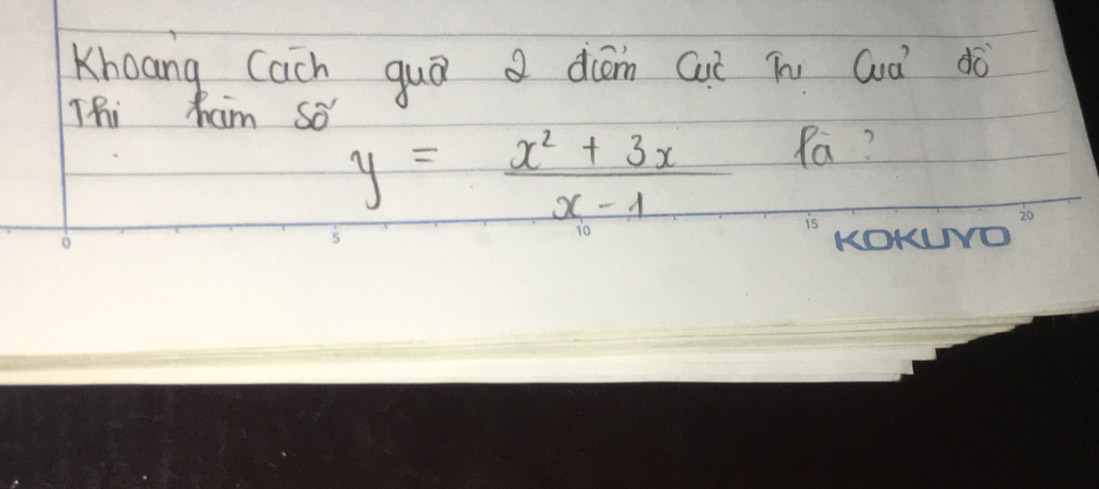 Khoảng Cách quã 2 điểm Cực Trị Cuả đồ
Thi hàm số
y = x² + 3x / x - 1 là ?
0 5 10 15 20
KOKUYO